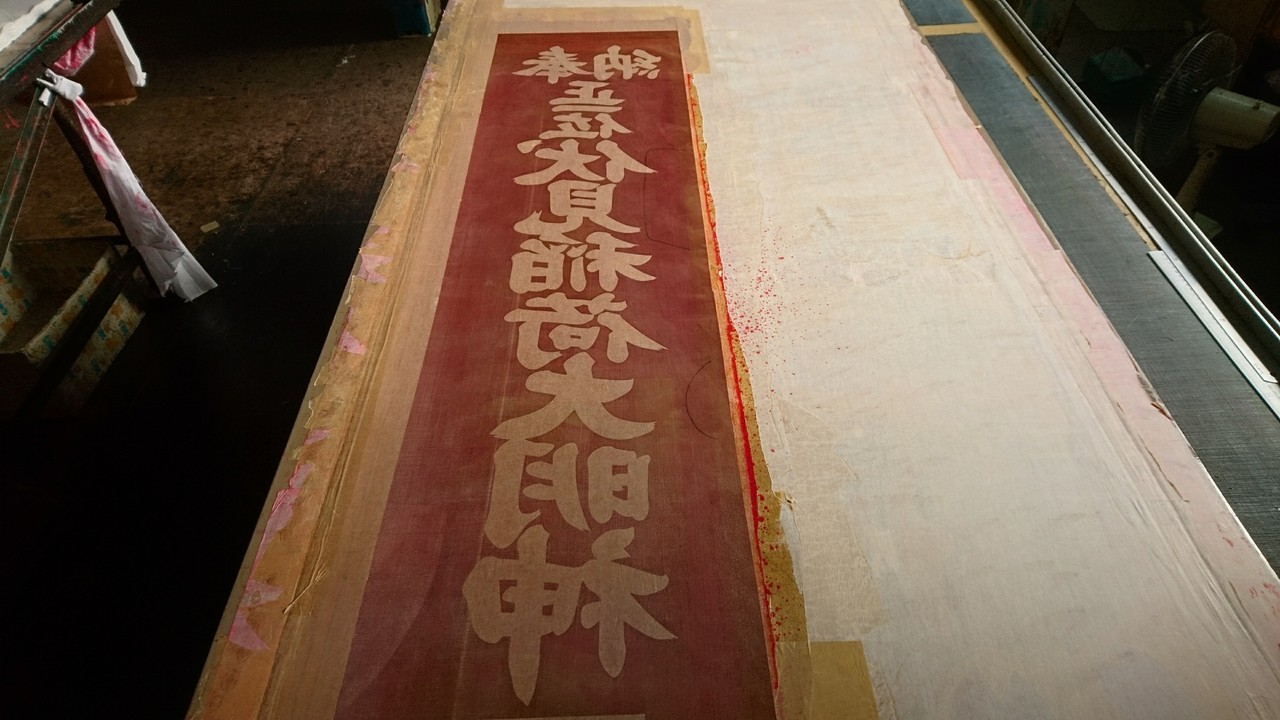 奉納
正一位伏見稲荷大明神